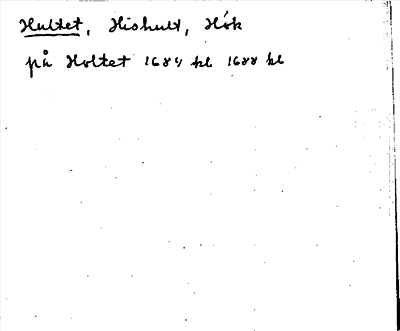 Hultet, Hishult, Hök
på Holtet 1684 kl 1688 kl